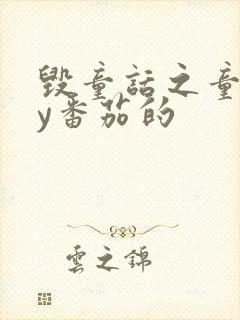 毁童话之童
y番茄的
雲之錦